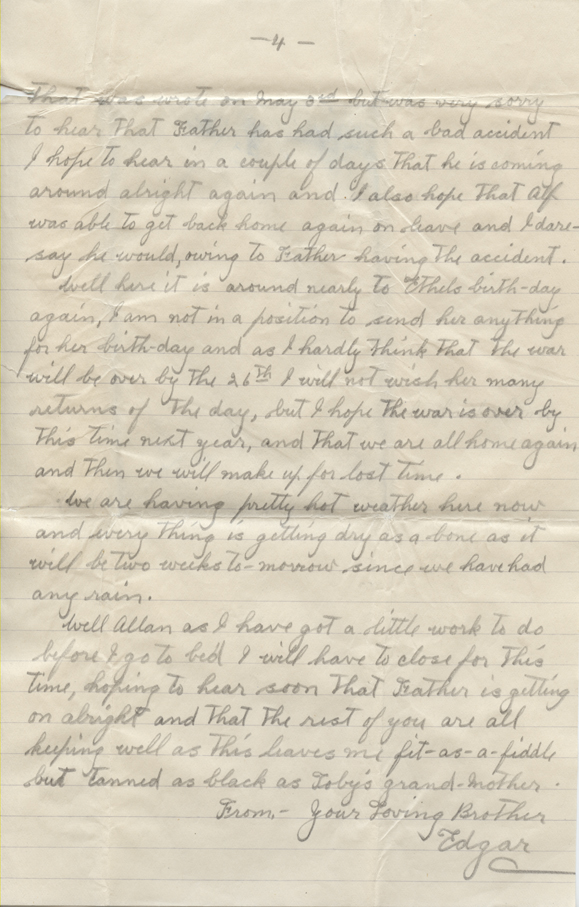 — 4 —
That was wrote on May 3rd but was very sorry
to hear that Father has had such a bad accident
I hope to hear in a couple of days that he is coming
around alright again and. I also hope that Alf
was able to get back home again on leave and I dare-
say he would, owing to Father having the accident.
Well here it is around nearly to Ethels birth-day
again, I am not in a position to send her anything
for her birth-day and as I hardly think that the war
will be over by the 26th I will not wish her many
returns of the day, but I hope the war is over by
this time next year, and that we are all home again
and then we will make up for lost time.
We are having pretty hot weather here now
and every thing is getting dry as a bone as it
will be two weeks to-morrow since we have had
any rain.
Well Allan as I have got a little work to do
before I go to bed I will have to close for this
time, hoping to hear soon that Father is getting
on alright and that the rest of you are all
keeping well as this leaves me fit-as-a-fiddle
but tanned as black as Toby's grand-mother.
From,- Your Loving Brother
Edgar